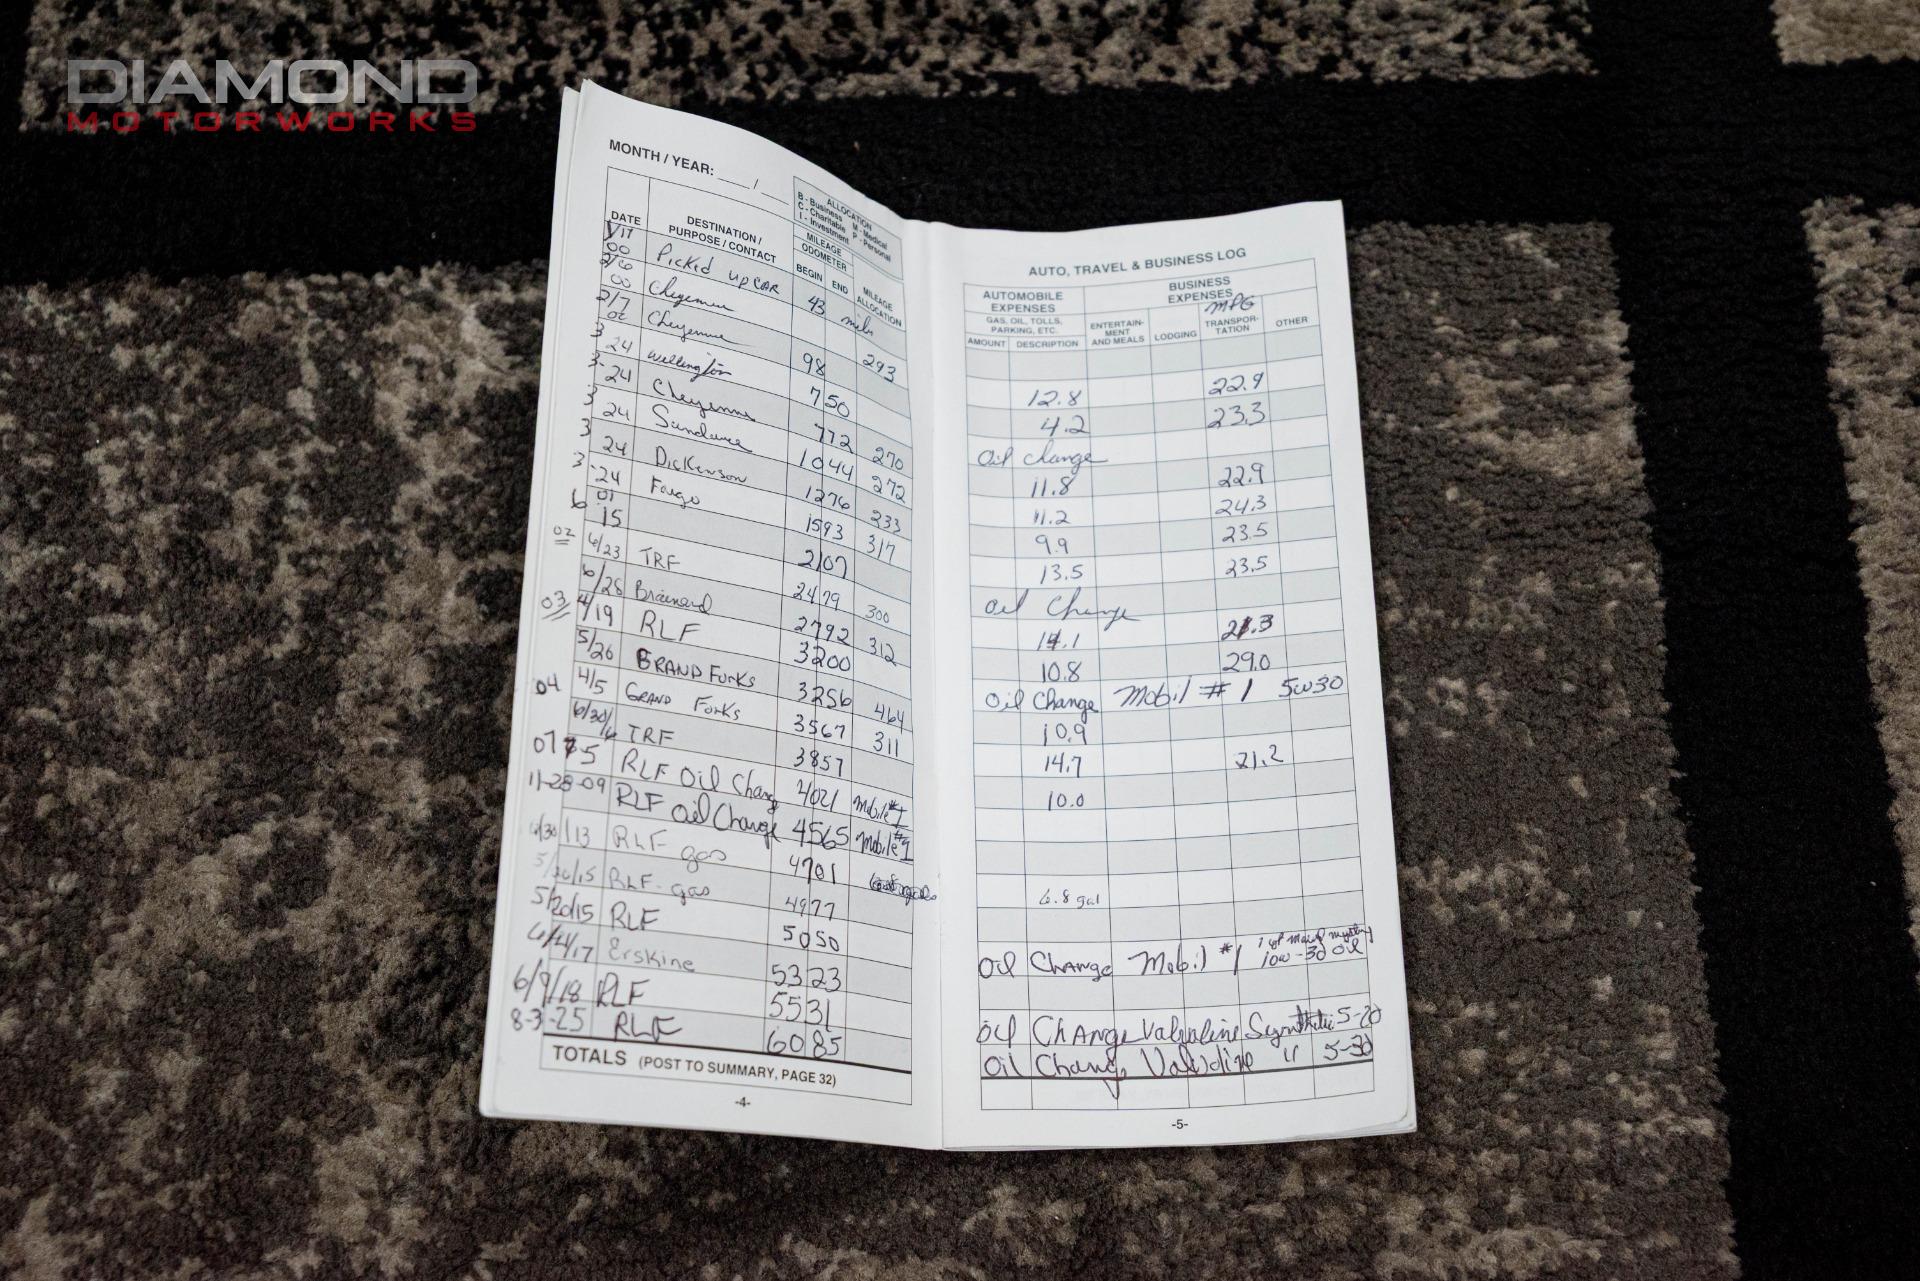 DIAMOND
MOTORWORKS
MONTH / YEAR: ____ / ____
ALLOCATION
B - Business M - Medical
C - Charitable P - Personal
I - Investment
DATE
DESTINATION /
PURPOSE / CONTACT
MILEAGE
ODOMETER
BEGIN END
MILEAGE
ALLOCATION
1/17
00 Picked up CAR 43 mils
2/6
00 Cheyenne 293
2/7
Cheyenne 98
3
24 Wellington 750
3-24 Cheyenne 772 270
3
24 Sundance 1044 272
3
24 Dickenson 1276 233
3-24 Fargo 1593 317
01
6 15 2107
02 6/23 TRF 2479 300
6/28 Brainard 2792 312
03 4/19 RLF 3200
5/26 GRAND Forks 3256 464
04 4/5 GRAND Forks 3567 311
6/30/ TRF 3857
07 5 RLF Oil Change 4021 Mobile #1
11-28-09 RLF Oil Change 4565 Mobile #1
/13 RLF gas 4701
/15 RLF-gas 4977
5/20/15 RLF 5050
/17 Erskine 5323
6/9/18 RLF 5531
8-3-25 RLF 6085
TOTALS (POST TO SUMMARY, PAGE 32)
-4-
AUTO, TRAVEL & BUSINESS LOG
AUTOMOBILE
EXPENSES
BUSINESS
EXPENSES
MPG
GAS, OIL, TOLLS,
PARKING, ETC.
AMOUNT DESCRIPTION
ENTERTAIN-
MENT
AND MEALS
LODGING
TRANSPOR-
TATION
OTHER
12.8 22.9
4.2 23.3
Oil Change
11.8 22.9
11.2 24.3
9.9 23.5
13.5 23.5
Oil Change
14.1 21.3
10.8 29.0
Oil Change Mobil #1 5w30
10.9
14.7 21.2
10.0
6.8 gal
Oil Change Mobil #1 10w-30 Oil
Oil Change Valvoline Synthetic 5-20
Oil Change Valvoline " 5-30
-5-